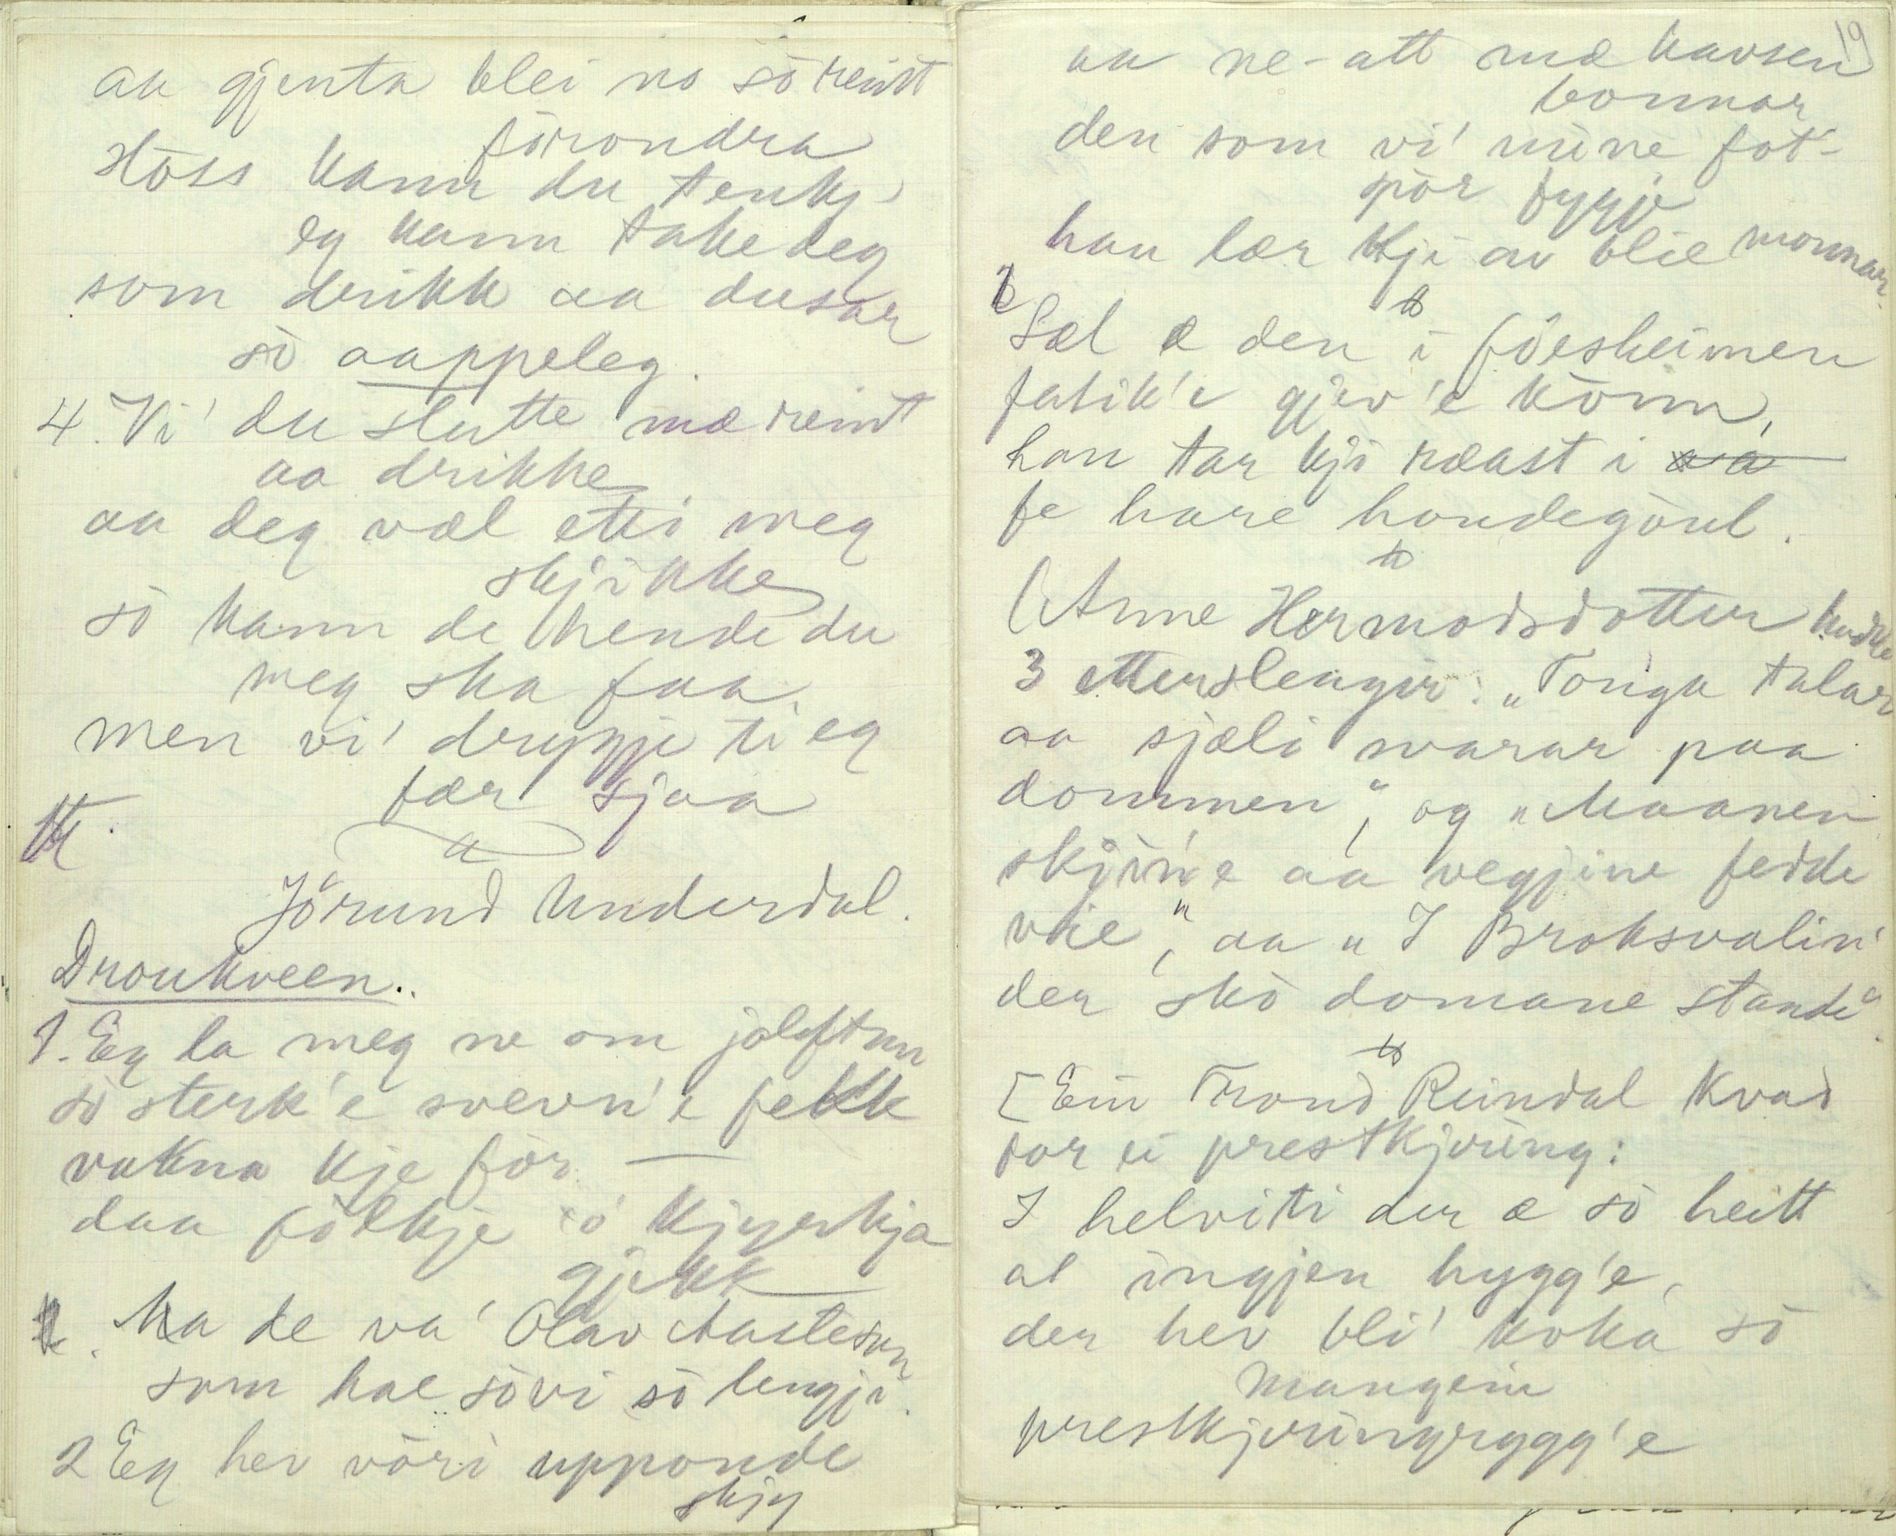 aa gjenta blei no sò reint
förondra
Hòss kann du tenkj'
eg kann take deg
som drikk aa dusar
sò aappeleg.
4. Vi' du slutte mæ reint
aa drikke
aa deg væl etti meg
skjikke
sò kann de hende du
meg ska faa,
men vi' drygje ti eg
fær sjaa
Jörund Underdal.
Droukveen.
1. Eg la meg ne om jolaftan
sò sterk'e svevn'e fekk
vakna kje för
daa fölkje ò kjyrkja
gjekk
Ka de va' Olav Aasteson
som hae sövi sò lengji.
2 Eg hev vöri upponde
skjy
19
aa ne-att mæ havsen
bonnar
den som vi' mine fot-
spòr fygje
han lær kji av blie monnar.
Sæl æ den i föesheimen
fatik'e gjev'e könn,
han tar kji ræast i
fe hare hondegòul.
(Anne Hermodsdotter hadde
3 ettersleagir: „Tonga talar
aa sjæli svarar paa
dommen“, og „Maanen
skjin'e aa vegjine fedde
vie“, aa „I Broksvalin'
der skò domane stande“.
[Ein Trond Reindal kvad
for ei prestkjering:
I helviti der æ sò heitt
at ingjen hygg'e,
der hev bli' koka sò
mangein
prestkjeringrygg'e